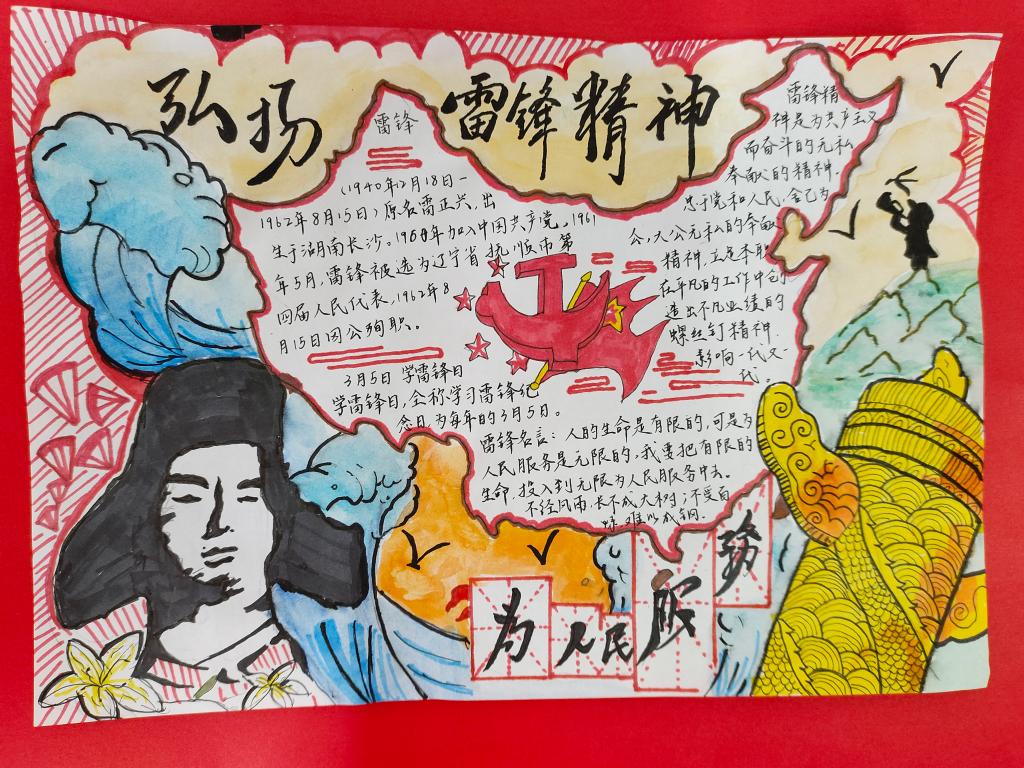 弘扬 雷锋精神
雷锋
(1940年12月18日-
1962年8月15日)原名雷正兴,出
生于湖南长沙。1960年加入中国共产党,1961
年5月,雷锋被选为辽宁省抚顺市第
四届人民代表,1962年8
月15日因公殉职。
3月5日 学雷锋日
学雷锋日,全称学习雷锋纪
念日为每年的3月5日。
雷锋名言:人的生命是有限的,可是为
人民服务是无限的,我要把有限的
生命,投入到无限为人民服务中去。
不经风雨,长不成大树;不受百
炼,难以成钢.
雷锋精
神是为共产主义
而奋斗的无私
奉献的精神.
忠于党和人民,舍己为
公,大公无私的奉献
精神,立足本职
在平凡的工作中创
造出不凡业绩的
螺丝钉精神.
影响一代又一
代。
为人民服务